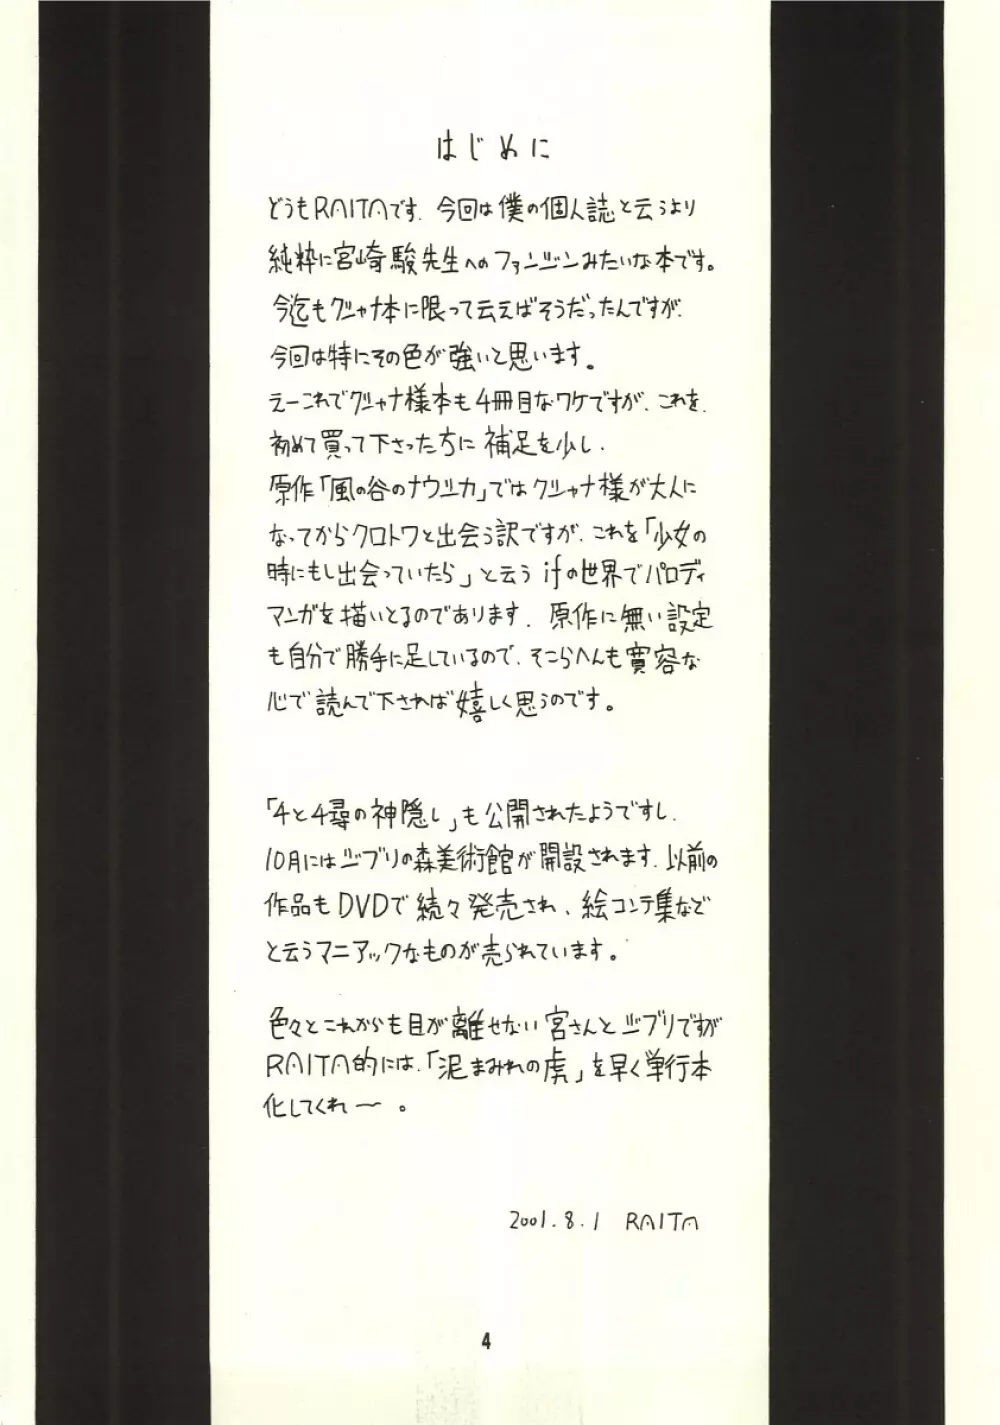 はじめに
どうもRAITAです. 今回は僕の個人誌と云うより
純粋に宮崎駿先生へのファンジンみたいな本です。
今迄もクシャナ本に限って云えばそうだったんですが.
今回は特にその色が強いと思います。
えーこれでクシャナ様本も4冊目なワケですが、これを.
初めて買って下さった方に 補足を少し.
原作「風の谷のナウシカ」ではクシャナ様が大人に
なってからクロトワと出会う訳ですが、これを「少女の
時にもし出会っていたら」と云う ifの世界でパロディ
マンガを描いとるのであります. 原作に無い設定
も自分で勝手に足しているので、そこらへんも寛容な
心で読んで下されば嬉しく思うのです。
「千と千尋の神隠し」も公開されたようですし.
10月にはジブリの森美術館が開設されます. 以前の
作品もDVDで続々発売され、絵コンテ集など
と云うマニアックなものが売られています。
色々とこれからも目が離せない宮さんとジブリですが
RAITA的には、「泥まみれの虎」を早く単行本
化してくれ〜。
2001.8.1 RAITA
4